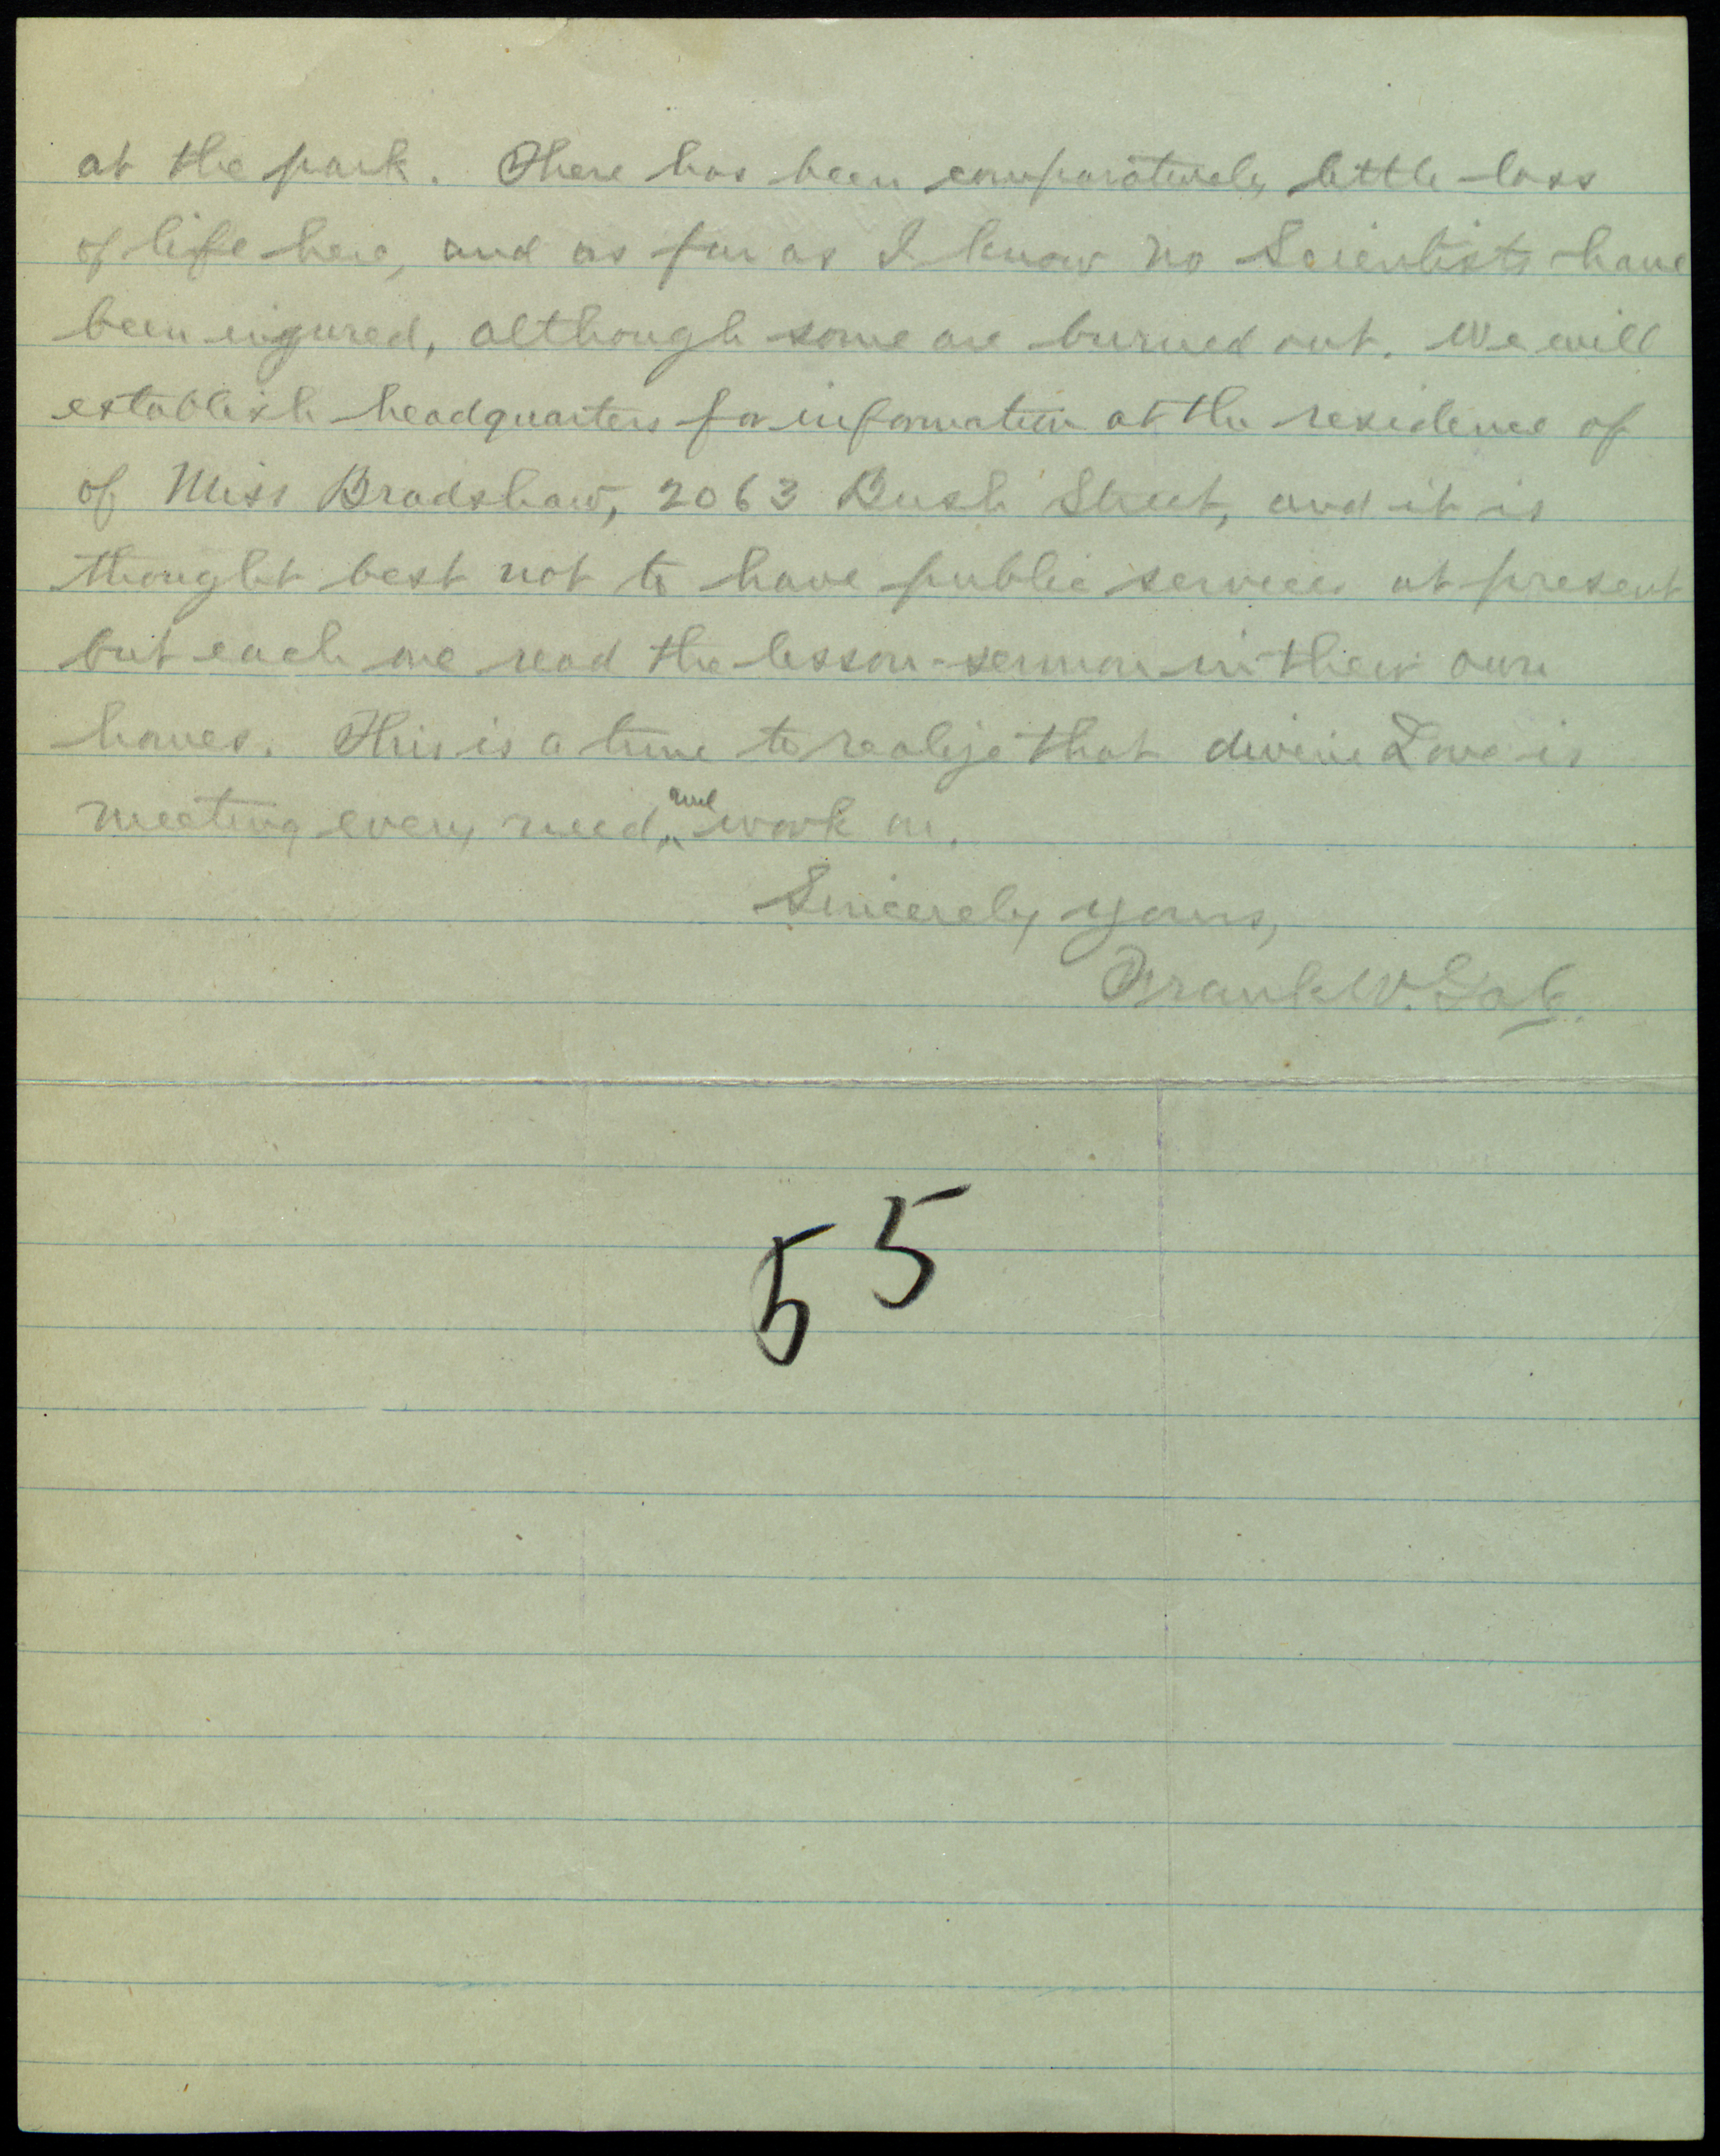 at the park. There has been comparatively little loss
of life here, and as far as I know no Scientists have
been injured, although some are burned out. We will
establish headquarters for information at the residence of
of Miss Bradshaw, 2063 Bush Street, and it is
thought best not to have public services at present
but each one read the lesson-sermon in their own
homes. This is a time to realize that divine Love is
meeting every need, and work on.
Sincerely yours,
Frank W. Gale.
55